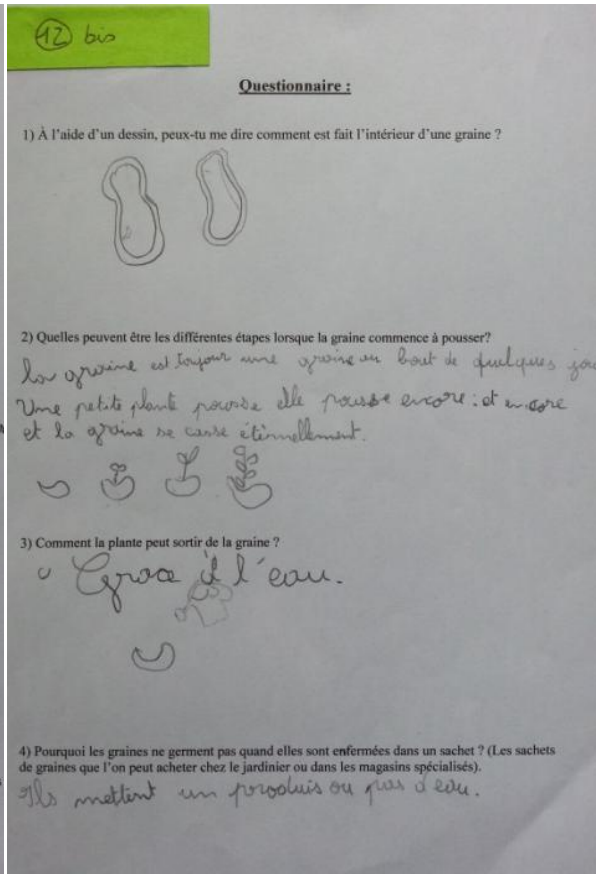 12 bis
Questionnaire :
1) À l'aide d'un dessin, peux-tu me dire comment est fait l'intérieur d'une graine ?
2) Quelles peuvent être les différentes étapes lorsque la graine commence à pousser?
la graine est toujour une graine au bout de quelques jou
Une petite plante pousse elle pousse encore : et encore
et la graine se casse éternellement.
3) Comment la plante peut sortir de la graine ?
Grace à l'eau.
4) Pourquoi les graines ne germent pas quand elles sont enfermées dans un sachet ? (Les sachets
de graines que l'on peut acheter chez le jardinier ou dans les magasins spécialisés).
Ils mettent un produis ou pas d'eau.